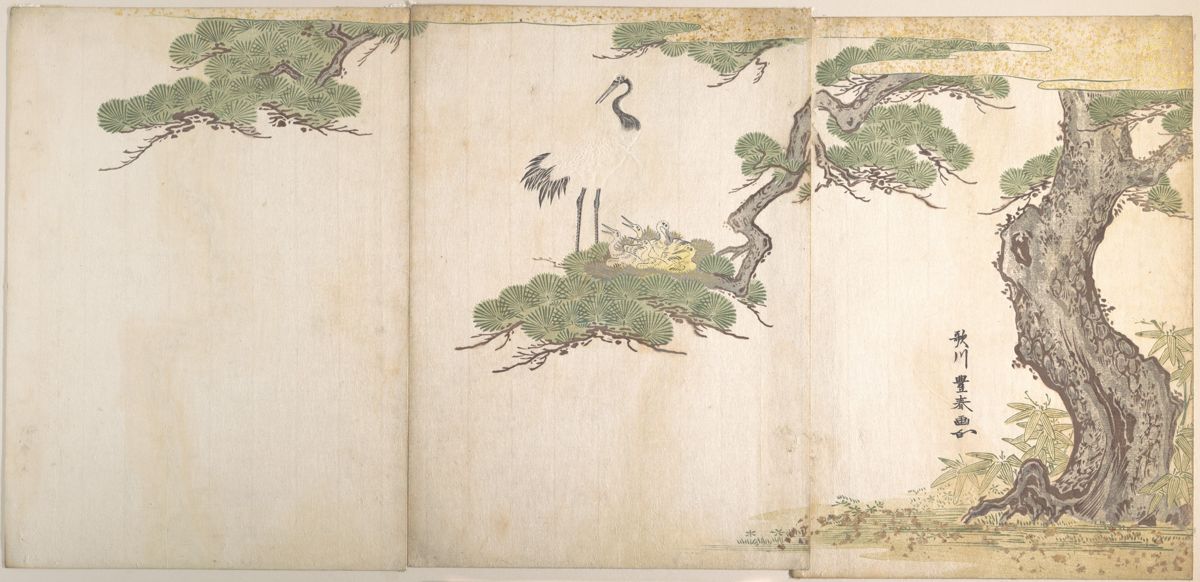 歌川豊春画